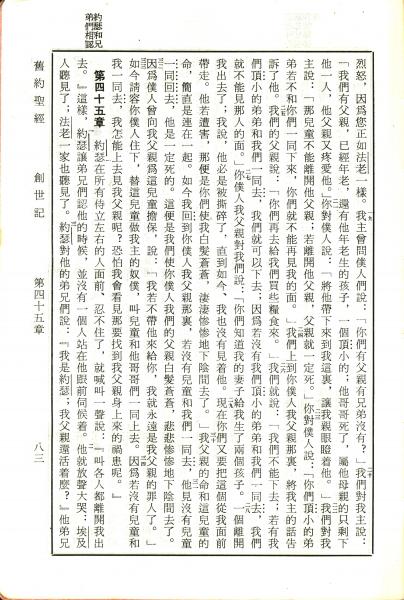 烈怒，因爲您正如法老一樣。我主曾問僕人們說：『你們有父親有兄弟沒有？』我們對我主說：
『我們有父親，已經年老，還有他年老生的孩子，一個頂小的；他哥哥死了，屬他母親的只剩下
他一人，他父親又疼愛他。』你對僕人說：『將他帶下來到我這裏，讓我親眼瞪着他。』我們對我
主說：『那兒童不能離開他父親；若離開他父親，父親就一定死。』你對僕人說：『你們頂小的弟
弟若不和你們一同下來，你們就不能再見我的面。』我們上到你僕人我父親那裏，將我主的話告
訴了他。我們的父親說：『你們再去給我們買些糧食來。』我們就說：『我們不能下去；若有我
們頂小的弟弟和我們一同去，我們就可以下去；因爲若沒有我們頂小的弟弟和我們一同去，我們
就不能見那人的面。』你僕人我父親對我們說：『你們知道我的妻子給我生了兩個孩子。一個離開
我出去了；我說，他必是被撕碎了，直到如今、我也沒有見着他。現在你們又要把這個從我面前
帶走。他若遭害，那便是你們使我白髮蒼蒼，淒淒慘慘地下陰間去了。』我父親的命和這兒童的
命，簡直是連在一起。如今我回到你僕人我父親那裏，若沒有兒童和我們一同去，他見沒有兒童
一同回去，他是一定死的。這便是我們使你僕人我們的父親白髮蒼蒼，悲悲慘慘地下陰間去了。
因爲僕人曾向我父親爲這兒童擔保，說，『我若不帶他來給你，我就永遠是我父親的罪人了。』
如今請容你僕人住下，替這兒童做我主的奴僕，叫兒童和他哥哥們一同上去。因爲若沒有兒童和
我一同去，我怎能上去見我父親呢？恐怕我會看見那要找到我父親身上來的禍患呢。』
第四十五章　約瑟在所有侍立左右的人面前、忍不住了，就喊叫一聲說：『叫各人都離開我出
去。』這樣，約瑟讓弟兄們認他的時候，並沒有一個人站在他跟前伺候着。他就放聲大哭；埃及
人聽見了；法老一家也聽見了。約瑟對他的弟兄們說：『我是約瑟；我父親還活着麼？』他弟兄
約瑟和兄
弟們相認
舊約聖經　創世記　第四十五章　八三